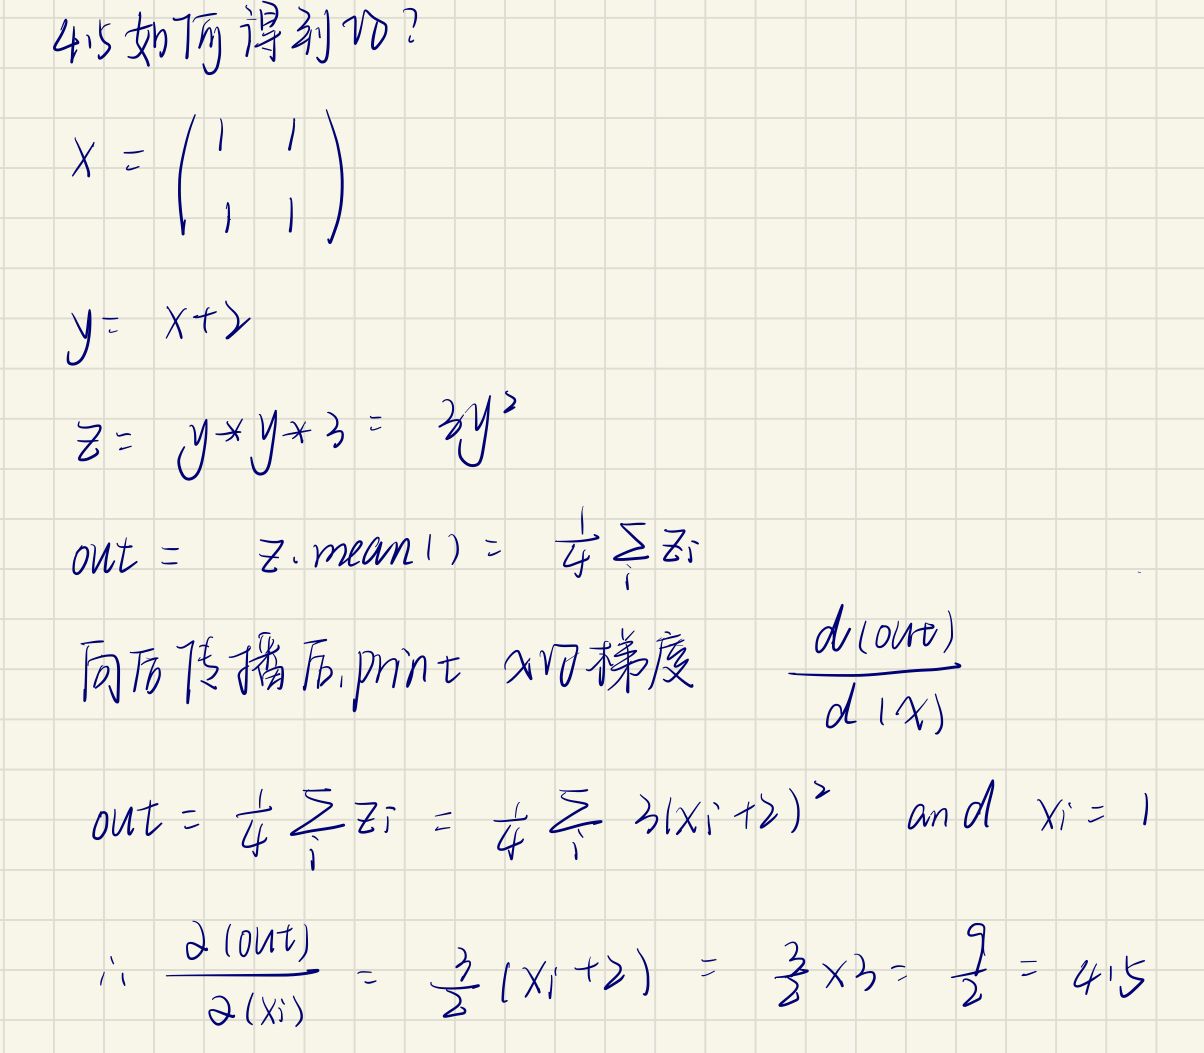 4.5如何得到的?
x = ( 1 1
1 1 )
y = x+2
z = y*y*3 = 3y²
out = z.mean() = 1/4 ∑i zi
向后传播后,print x的梯度 d(out)/d(x)
out = 1/4 ∑i zi = 1/4 ∑i 3(xi+2)² and xi = 1
∴ ∂(out)/∂(xi) = 3/2 (xi+2) = 3/2 ×3 = 9/2 = 4.5